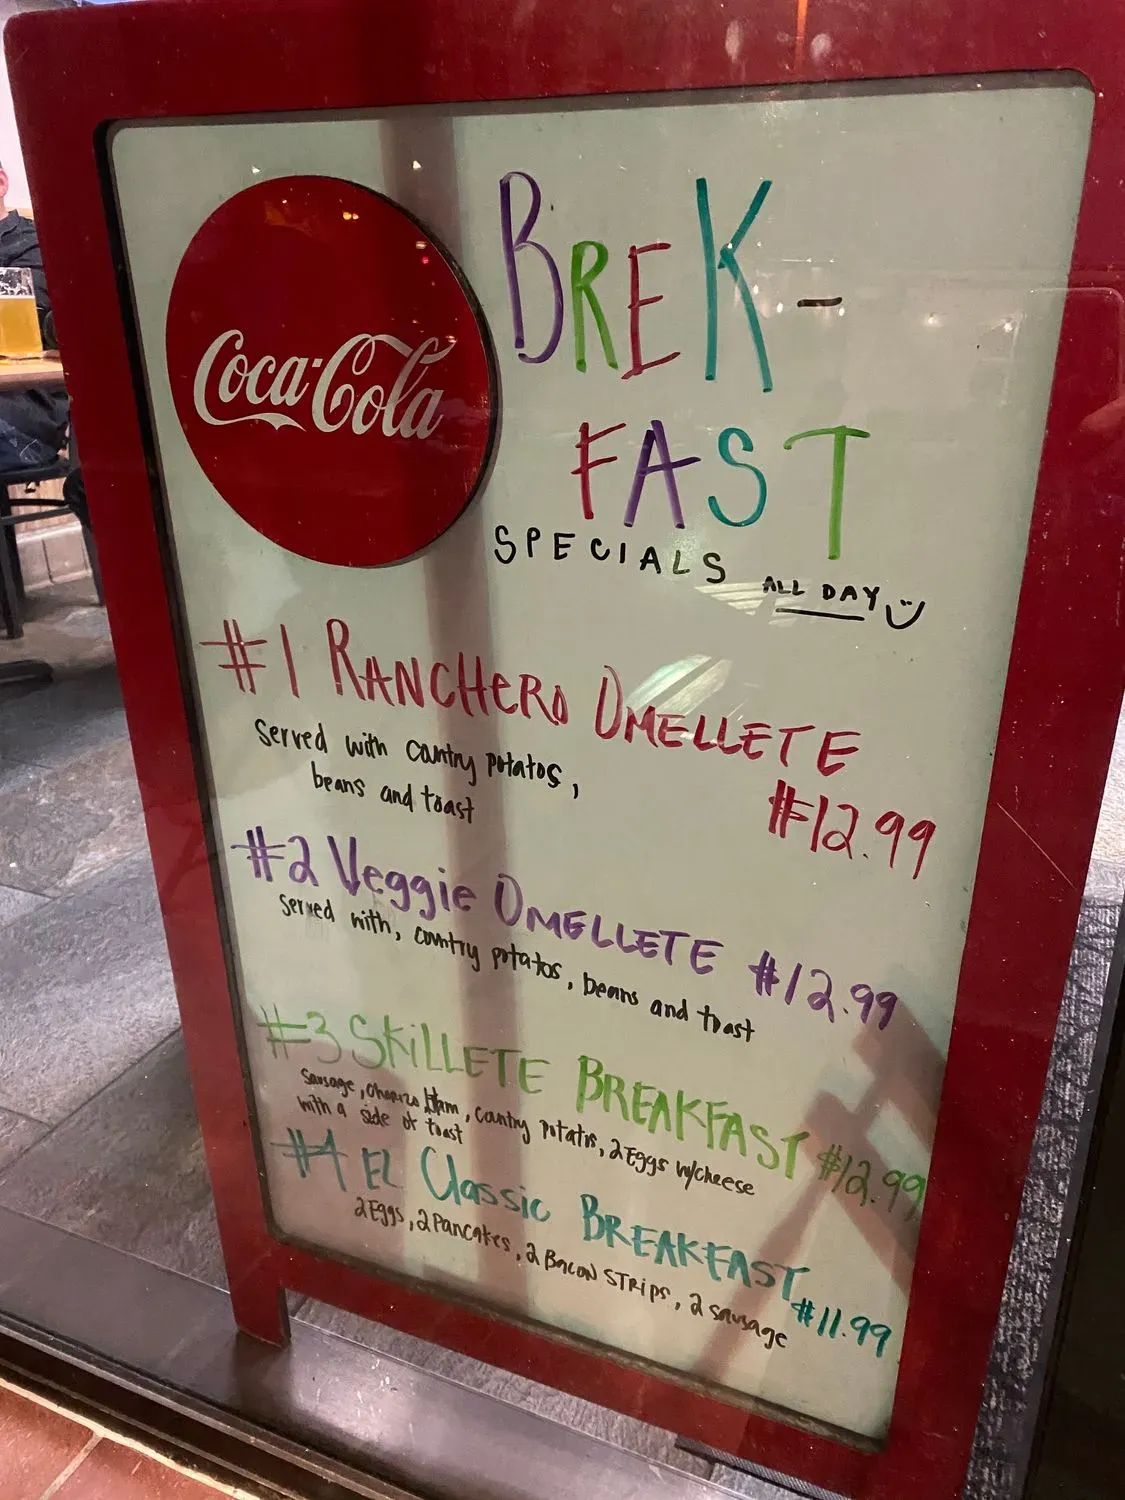 Coca-Cola
BREK-
FAST
SPECIALS ALL DAY
#1 RANCHERO OMELLETE
#12.99
Served with country potatos,
beans and toast
#2 Veggie OMELLETE #12.99
Served with, country potatos, beans and toast
#3 SKILLETE BREAKFAST #12.99
Sausage, chorizo, Ham, country potatos, 2 Eggs w/cheese
with a side of toast
#4 EL Classic BREAKFAST
#11.99
2 Eggs, 2 Pancakes, 2 Bacon STRIPS, 2 sausage